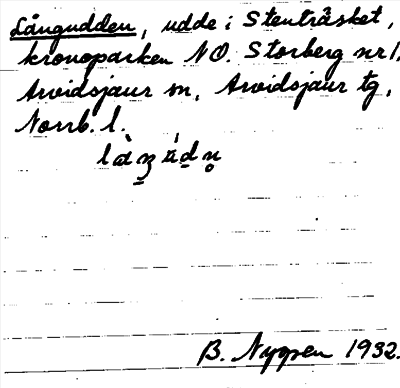 Långudden, udde i Stenträsket,
kronoparken NO. Storberg nr 1,
Arvidsjaur sn, Arvidsjaur tg,
Norrb. l.
B. Nygren 1932.